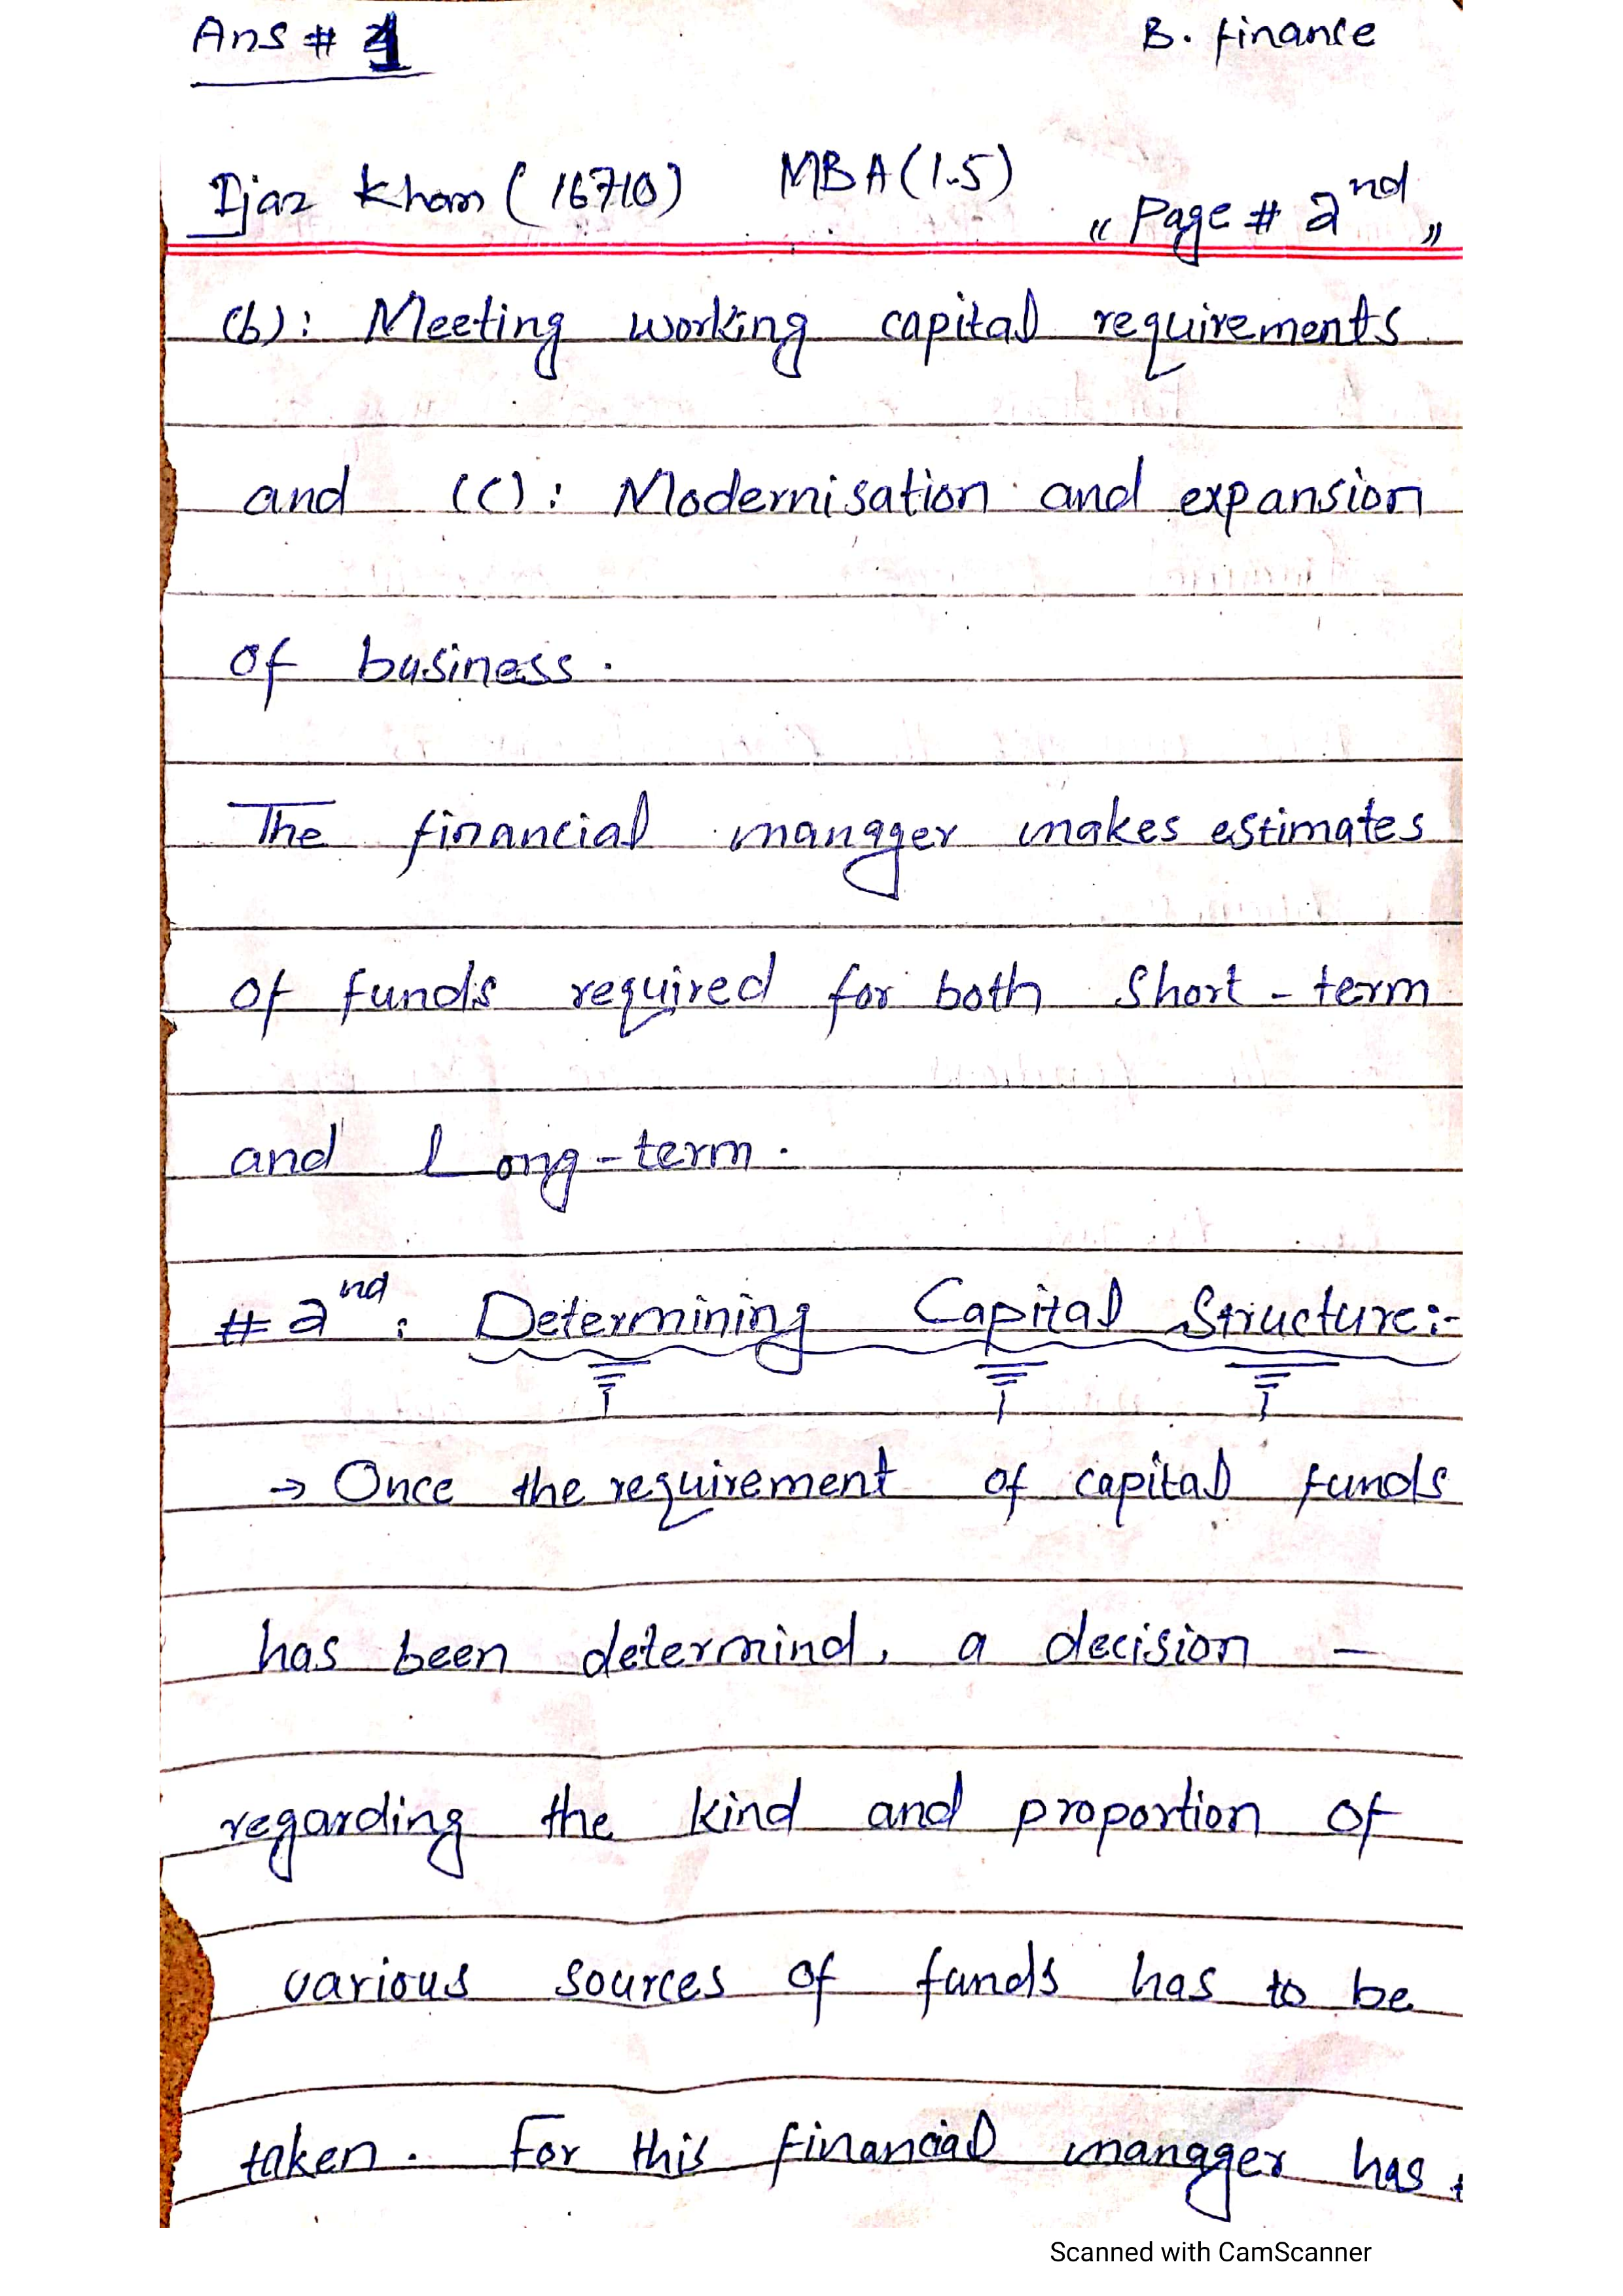 Ans # 1
B. finance
Ijaz Khan (16710) MBA (1.5) " Page # 2nd "
(b): Meeting working capital requirements
and (c): Modernisation and expansion
of business.
The financial manager makes estimates
of funds required for both short-term
and Long-term.
# 2nd : Determining Capital Structure:-
→ Once the requirement of capital funds
has been determind, a decision –
regarding the kind and proportion of
various sources of funds has to be
taken. For this financial manager has
Scanned with CamScanner